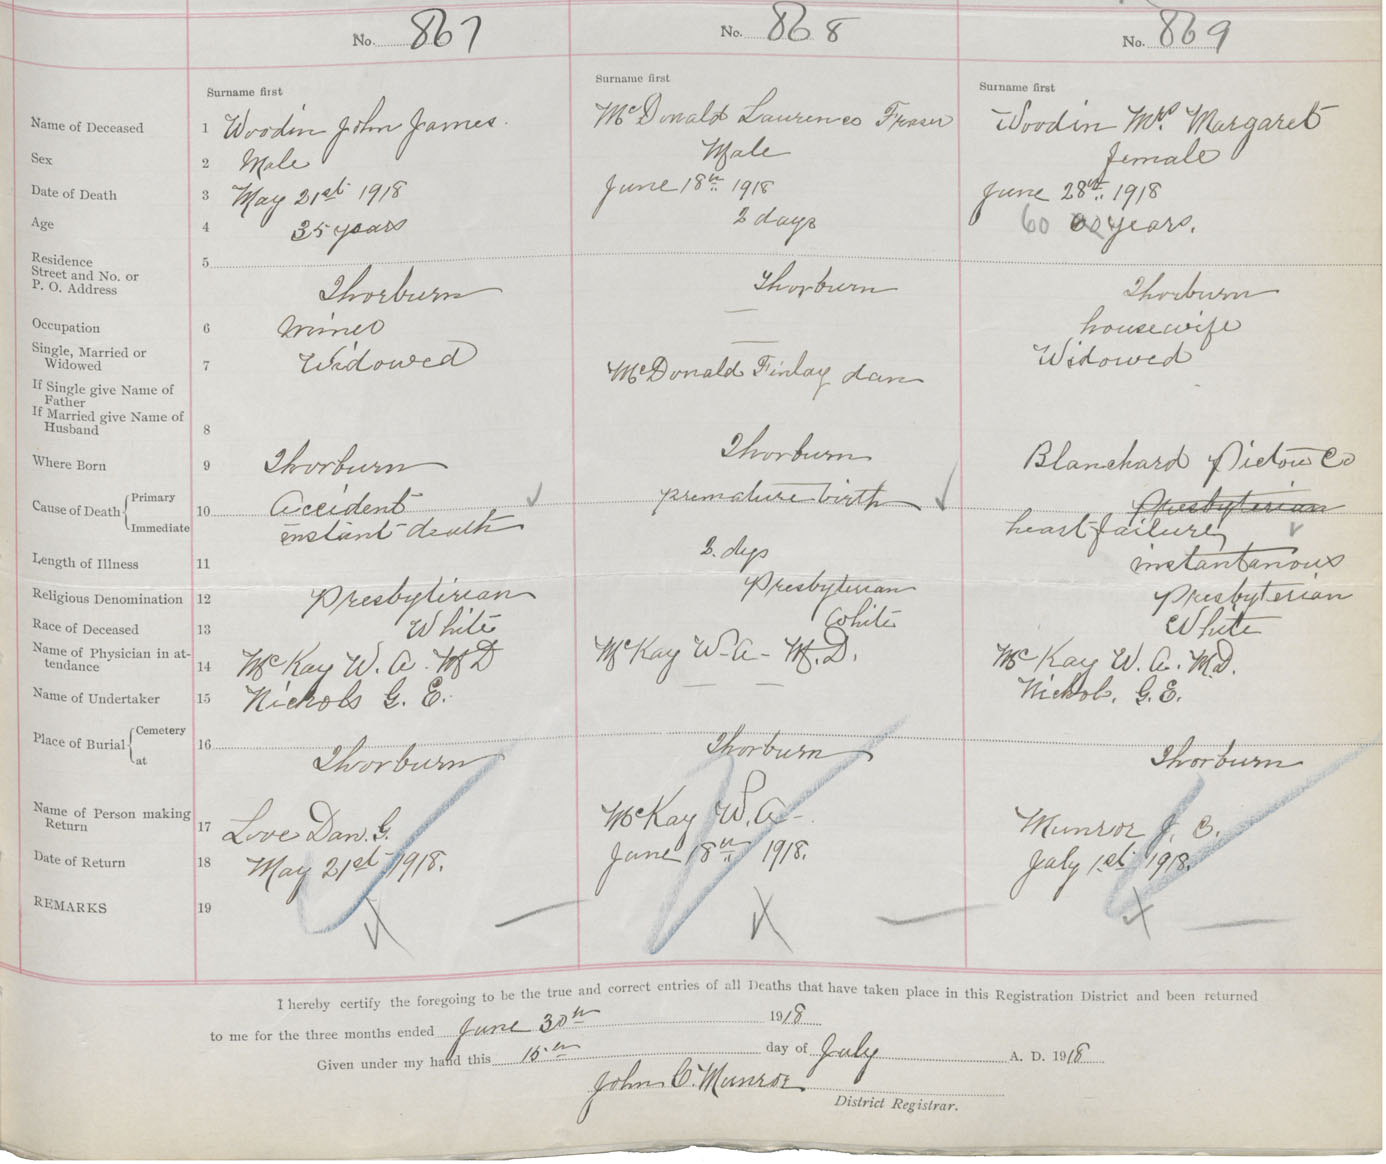 No. 867 No. 868 No. 869
Surname first Surname first Surname first
Name of Deceased 1 Woodin John James. McDonald Laurence Fraser Woodin Mrs. Margaret
Sex 2 Male Male female
Date of Death 3 May 21st 1918 June 18th 1918 June 28th 1918
Age 4 35 years 2 days 60 60 years.
Residence Street and No. or P. O. Address 5 Thorburn Thorburn Thorburn
Occupation 6 miner — housewife
Single, Married or Widowed 7 Widowed — Widowed
If Single give Name of Father
If Married give Name of Husband 8 McDonald Finlay dan
Where Born 9 Thorburn Thorburn Blanchard Pictou Co
Cause of Death { Primary 10 Accident premature birth Presbyterian
Immediate instant death heart failure,
Length of Illness 11 2. dys instantanous
Religious Denomination 12 Presbyterian Presbyterian Presbyterian
Race of Deceased 13 White White White
Name of Physician in attendance 14 McKay W. A. M D McKay W-A- M.D. McKay W. A. M.D.
Name of Undertaker 15 Nichols G. E. — — Nichols. G.E.
Place of Burial { Cemetery 16
at Thorburn Thorburn Thorburn
Name of Person making Return 17 Love Dan. G. McKay W. A-. Munroe J. C.
Date of Return 18 May 21st 1918. June 18th 1918. July 1st 1918.
REMARKS 19
I hereby certify the foregoing to be the true and correct entries of all Deaths that have taken place in this Registration District and been returned
to me for the three months ended June 30th 1918
Given under my hand this 15th day of July A. D. 1918
John C. Munroe
District Registrar.